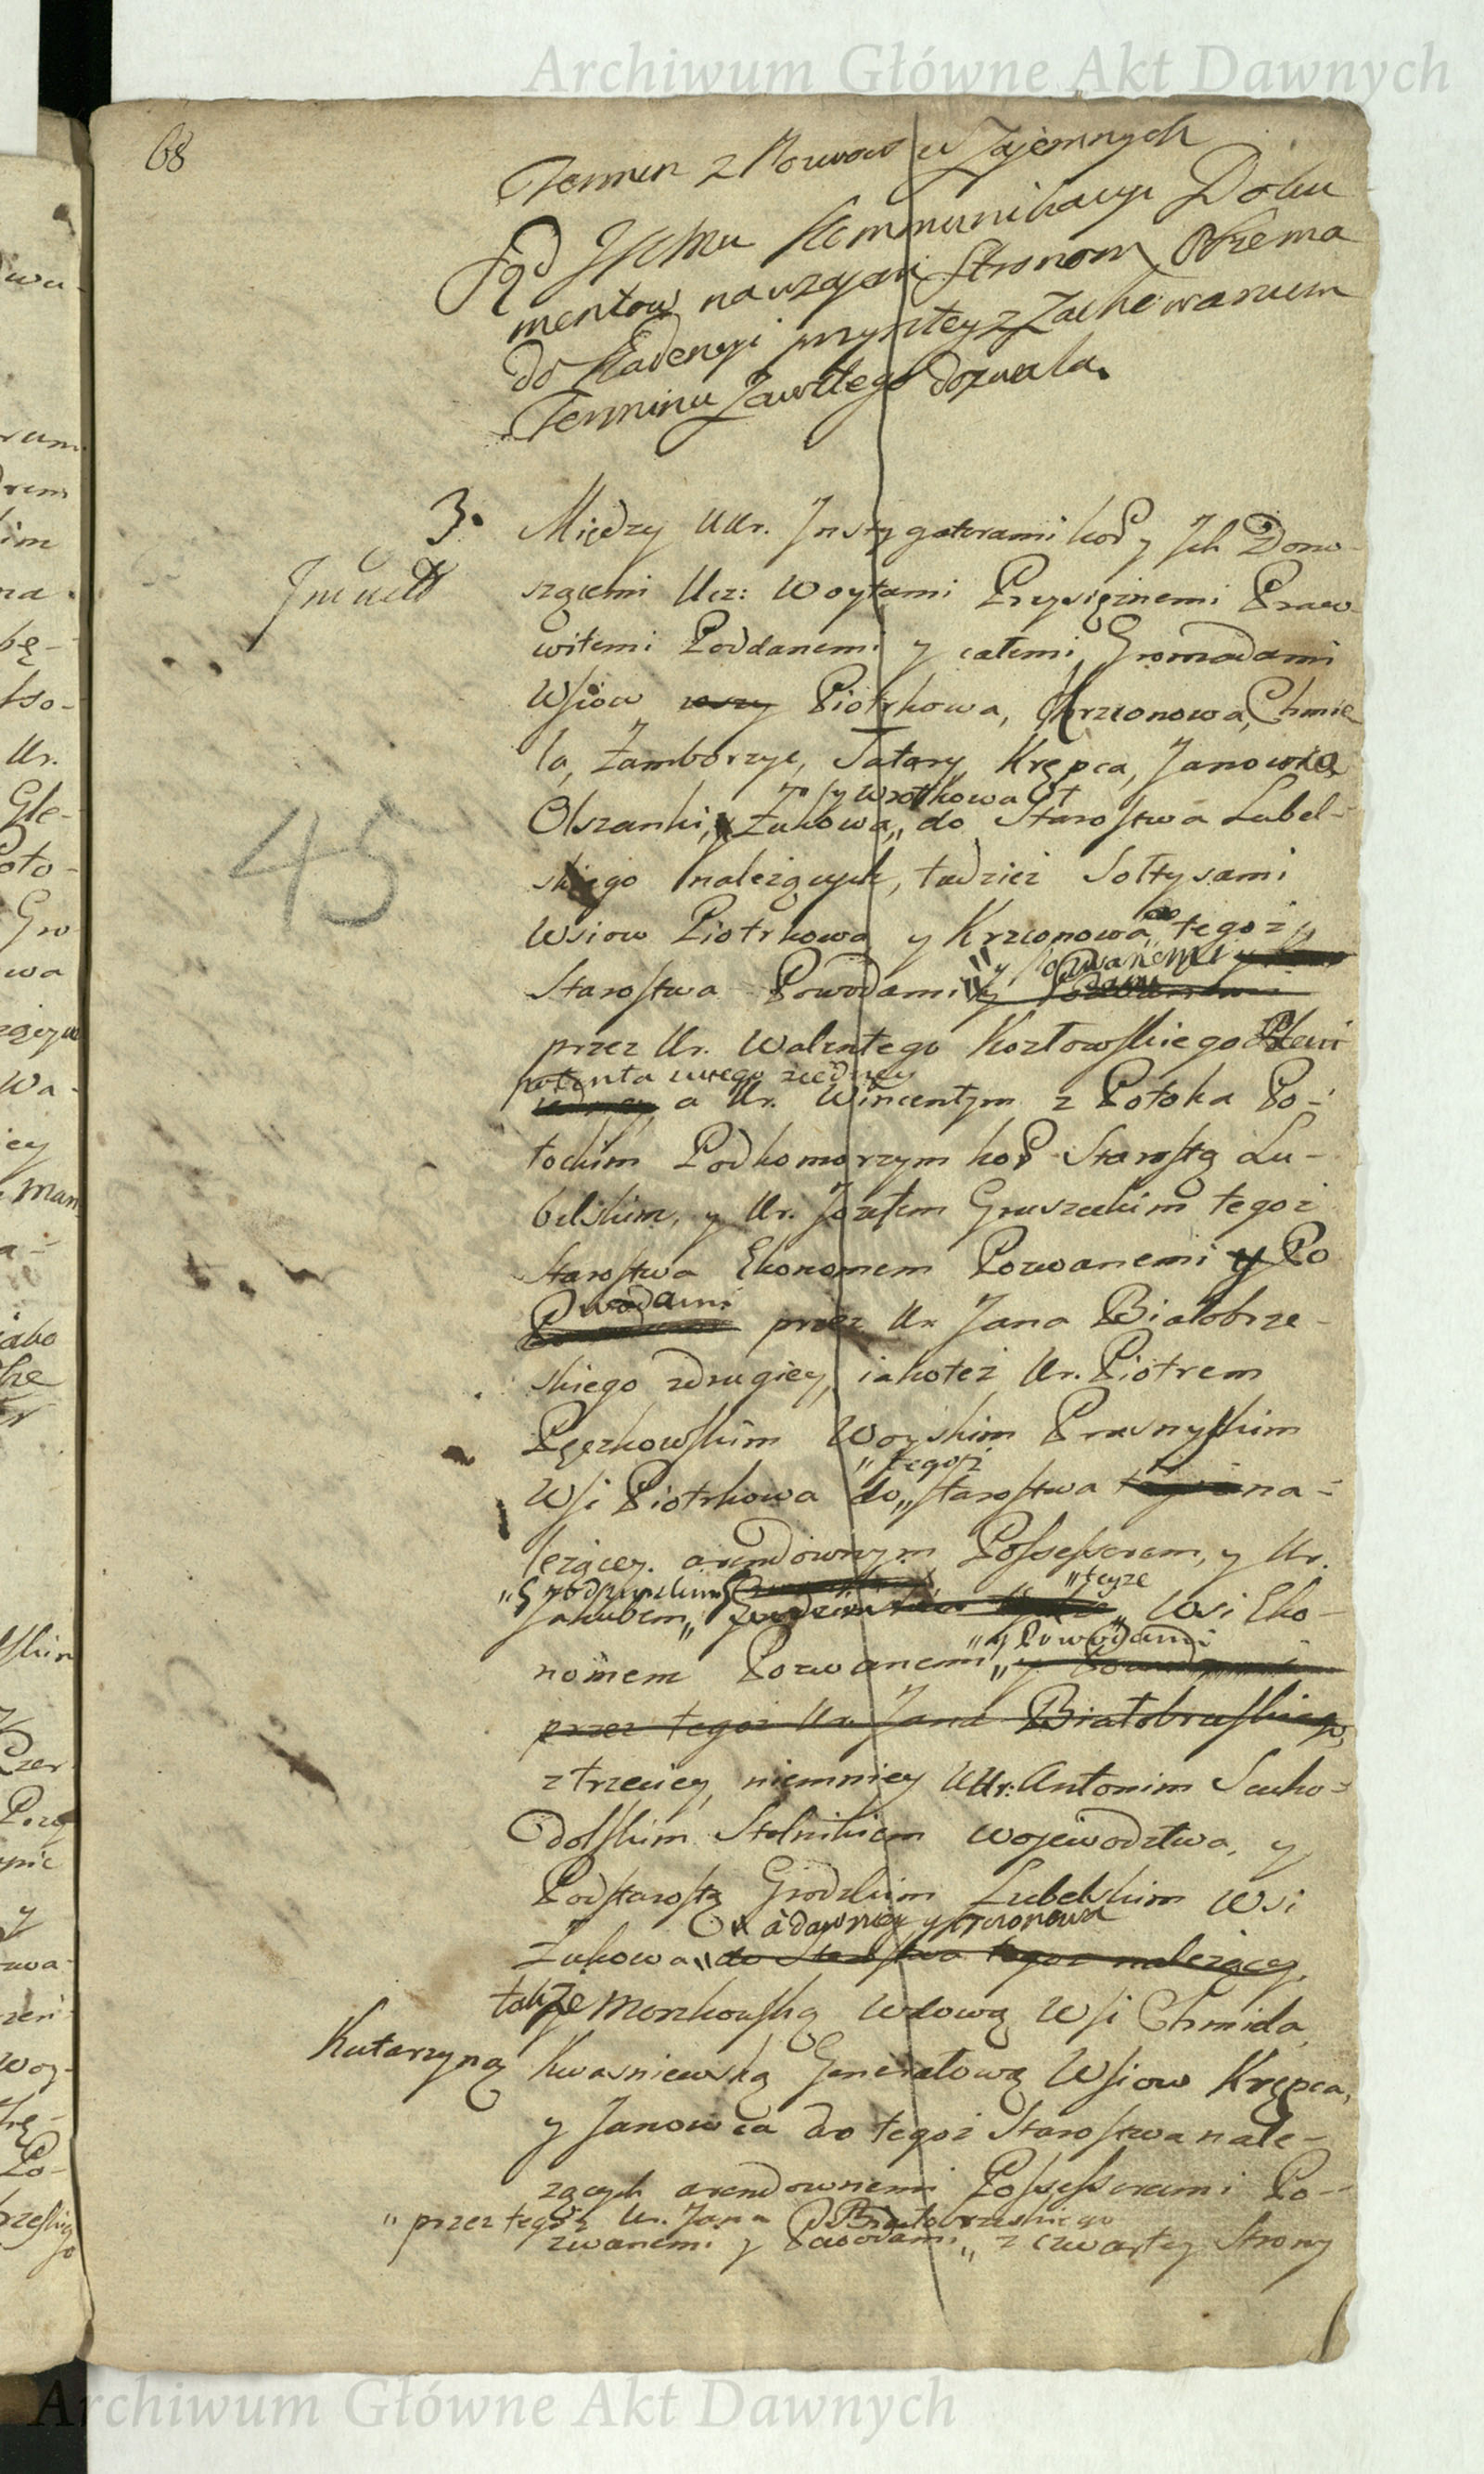 Archiwum Główne Akt Dawnych
68
Termin z Pozwow wzajemnych
Sąd JKMci Kommunikacyi Doku
mentow nawzajem Stronom Oboma
do Kadencyi przyszłey z Zachowaniem
Terminu Zawitego dozwala.
3. Między UUr. Instygatorami kor y Ich Dono-
szącemi Ucz: Woytami Przysięznemi Praco-
witemi Poddanemi y całemi Gromadami
Wsiow Piotrkowa, Krzconowa, Chmie
la, Zamborzyc, Tatary Krępca, Janowca
y Wrotkowa
Olszanki, Żukowa,, do Starostwa Lubel-
skiego należących, tudzież Sołtysami
Wsiow Piotrkowa y Krzconowa tegoż
y Pozwanemi
Starostwa Powodami
przez Ur. Walentego Kozłowskiego Pleni
potenta swego z iedney
a Ur. Wincentym z Potoka Po-
tockim Podkomorzym kor Starostą Lu-
belskim, y Ur. Jozefem Gruszeckim tegoż
Starostwa Ekonomem Pozwanemi y Po
wodami
przez Ur. Jana Białobrze-
skiego z drugiey, iakoteż Ur. Piotrem
Pęczkowskim Woyskim Prasnyskim
,, tegoż
Wsi Piotrkowa do,, starostwa na-
leżącey arendownym Possessorem, y Ur.
,, teyże
Jakubem,, Wsi Eko-
,, y Powodami
nomem Pozwanemi,,
przez tegoż Ur. Jana Białobrzeskiego,
z trzeciey, niemniey UUr: Antonim Sucho-
dolskim Stolnikiem Wojewodztwa, y
Podstarostą Grodzkim Lubelskim Wsi
a dawniey y Krzconowa
Żukowa,, do Starostwa tegoż należącey,
także Morzkowską Wdową Wsi Chmiela
Katarzyną Kwasniewską Generałową Wsiow Krępca,
y Janowca do tegoż Starostwa nale-
zących arendownemi Possessorami Po-
,, przez tegoż Ur. Jana Białobrzeskiego
zwanemi y Powodami,, z czwartey Strony
45
Archiwum Główne Akt Dawnych